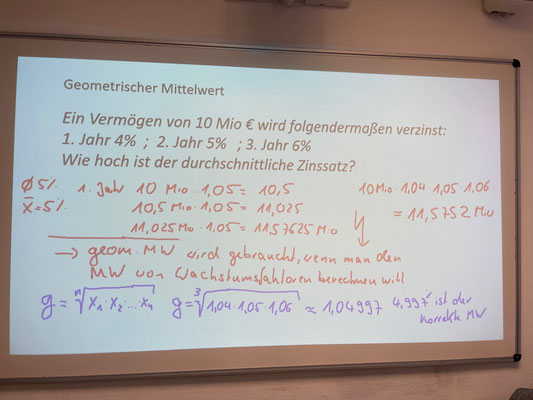 Geometrischer Mittelwert
Ein Vermögen von 10 Mio € wird folgendermaßen verzinst:
1. Jahr 4% ; 2. Jahr 5% ; 3. Jahr 6%
Wie hoch ist der durchschnittliche Zinssatz?
Ø 5% 1. Jahr 10 Mio · 1,05 = 10,5 10 Mio · 1,04 · 1,05 · 1.06
x̄ = 5% 10,5 Mio · 1.05 = 11,025 = 11,5752 Mio
11,025 Mio · 1.05 = 11,57625 Mio
→ geom. MW wird gebraucht, wenn man den
MW von Wachstumsfaktoren berechnen will
g = ⁿ√x₁ · x₂ · ... xₙ g = ³√1,04 · 1.05 · 1,06 ≈ 1,04997 4,997% ist der
korrekte MW